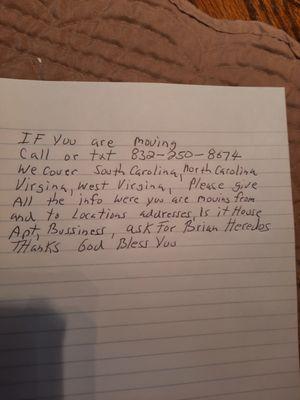 IF You are moving
Call or txt 832-250-8674
We cover South Carolina, North Carolina
Virgina, West Virgina, Please give
All the info were you are moving from
and to Locations addresses, Is it House
Apt, Bussiness, ask for Brian Heredos
THanks God Bless You